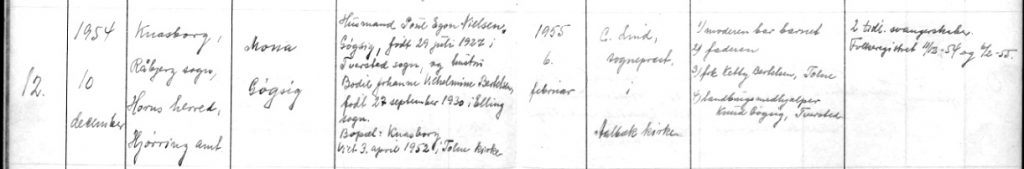 12.
1954
10
december
Knasborg,
Råbjerg sogn,
Horns herred,
Hjørring amt
Mona
Gøgsig
Husmand Poul Egon Nielsen
Gøgsig, født 29 juli 1927 i
Tversted sogn, og hustru
Bodil Johanne Vilhelmine Bertelsen
født 27 september 1930 i Elling
sogn.
Bopæl: Knasborg
Viet 3. april 1952 i Tolne kirke
1955
6.
februar
C. Lind,
sognepræst.
Aalbæk kirke
1/ moderen bar barnet
2/ faderen
3/ frk Ketty Bertelsen, Tolne
4/ landbrugsmedhjælper
Knud Gøgsig, Tversted
2 tidl. svangerskaber.
Folkeregistret